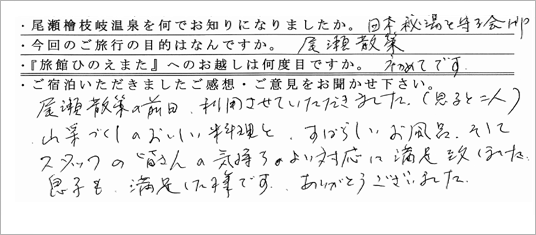 ・尾瀬檜枝岐温泉を何でお知りになりましたか。日本秘湯を守る会HP
・今回のご旅行の目的はなんですか。尾瀬散策
・『旅館ひのえまた』へのお越しは何度目ですか。はじめてです。
・ご宿泊いただきましたご感想・ご意見をお聞かせ下さい。
尾瀬散策の前日、利用させていただきました。(息子と二人)
山菜づくしのおいしい料理と、すばらしいお風呂、そして
スタッフの皆さんの気持ちのよい対応に満足致しました。
息子も、満足した様です。ありがとうございました。